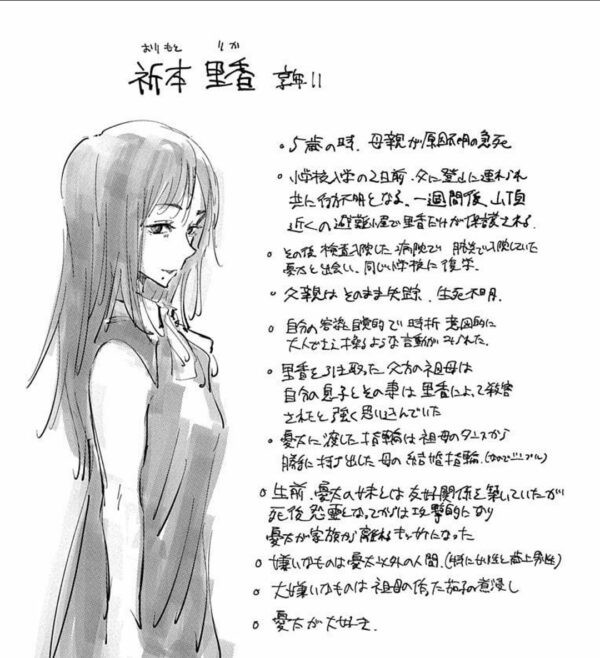 おりもと りか
祈本 里香 享年11
・5歳の時、母親が原因不明の急死
・小学校入学の2日前、父に登山に連れられ
共に行方不明となる、一週間後、山頂
近くの避難小屋で里香だけが保護される.
・その後 検査入院した病院で 肺炎で入院していた
憂太と出会い、同じ小学校に復学.
・父親は そのまま失踪、生死不明.
・自分の容姿に自覚的で 時折 意図的に
大人でさえ操るような言動がみられた.
・里香を引き取った父方の祖母は
自分の息子とその妻は里香によって殺害
されたと強く思い込んでいた
・憂太に渡した指輪は祖母のタンスから
勝手に持ち出した 母の結婚指輪.
・生前、憂太の妹とは友好関係を築いていたが
死後怨霊となってからは攻撃的になり
憂太が家族から離れるキッカケになった
・嫌いなものは憂太以外の人間.(特に女性と歳上男性)
・大嫌いなものは 祖母の作った茄子の煮浸し
・憂太が大好き.